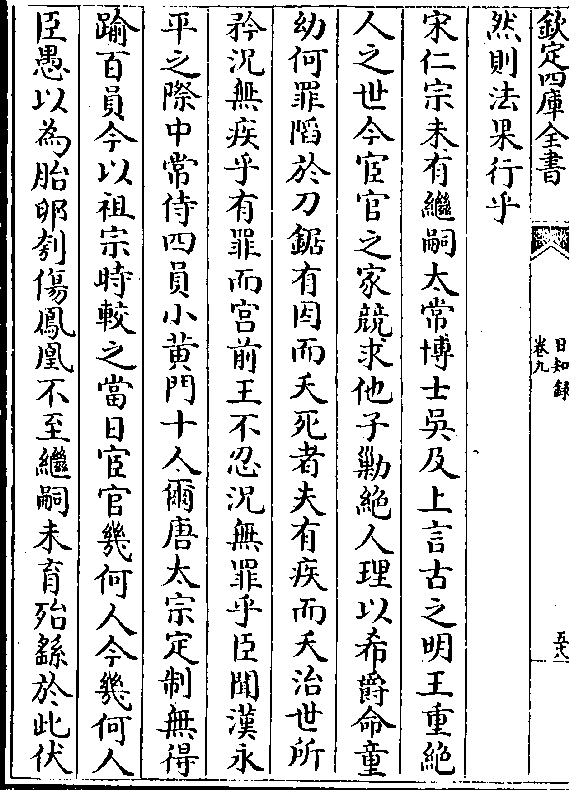 欽定四庫全書
日知録
卷九
五六
然則法果行乎
宋仁宗未有繼嗣太常博士吳及上言古之明王重絶
人之世今宦官之家競求他子勦絶人理以希爵命童
幼何罪䧟於刀鋸有因而夭死者夫有疾而夭治世所
矜況無疾乎有罪而宫前王不忍況無罪乎臣聞漢永
平之際中常侍四員小黄門十人爾唐太宗定制無得
踰百員今以祖宗時較之當日宦官幾何人今幾何人
臣愚以為胎卵刳傷鳳凰不至繼嗣未育殆繇於此伏